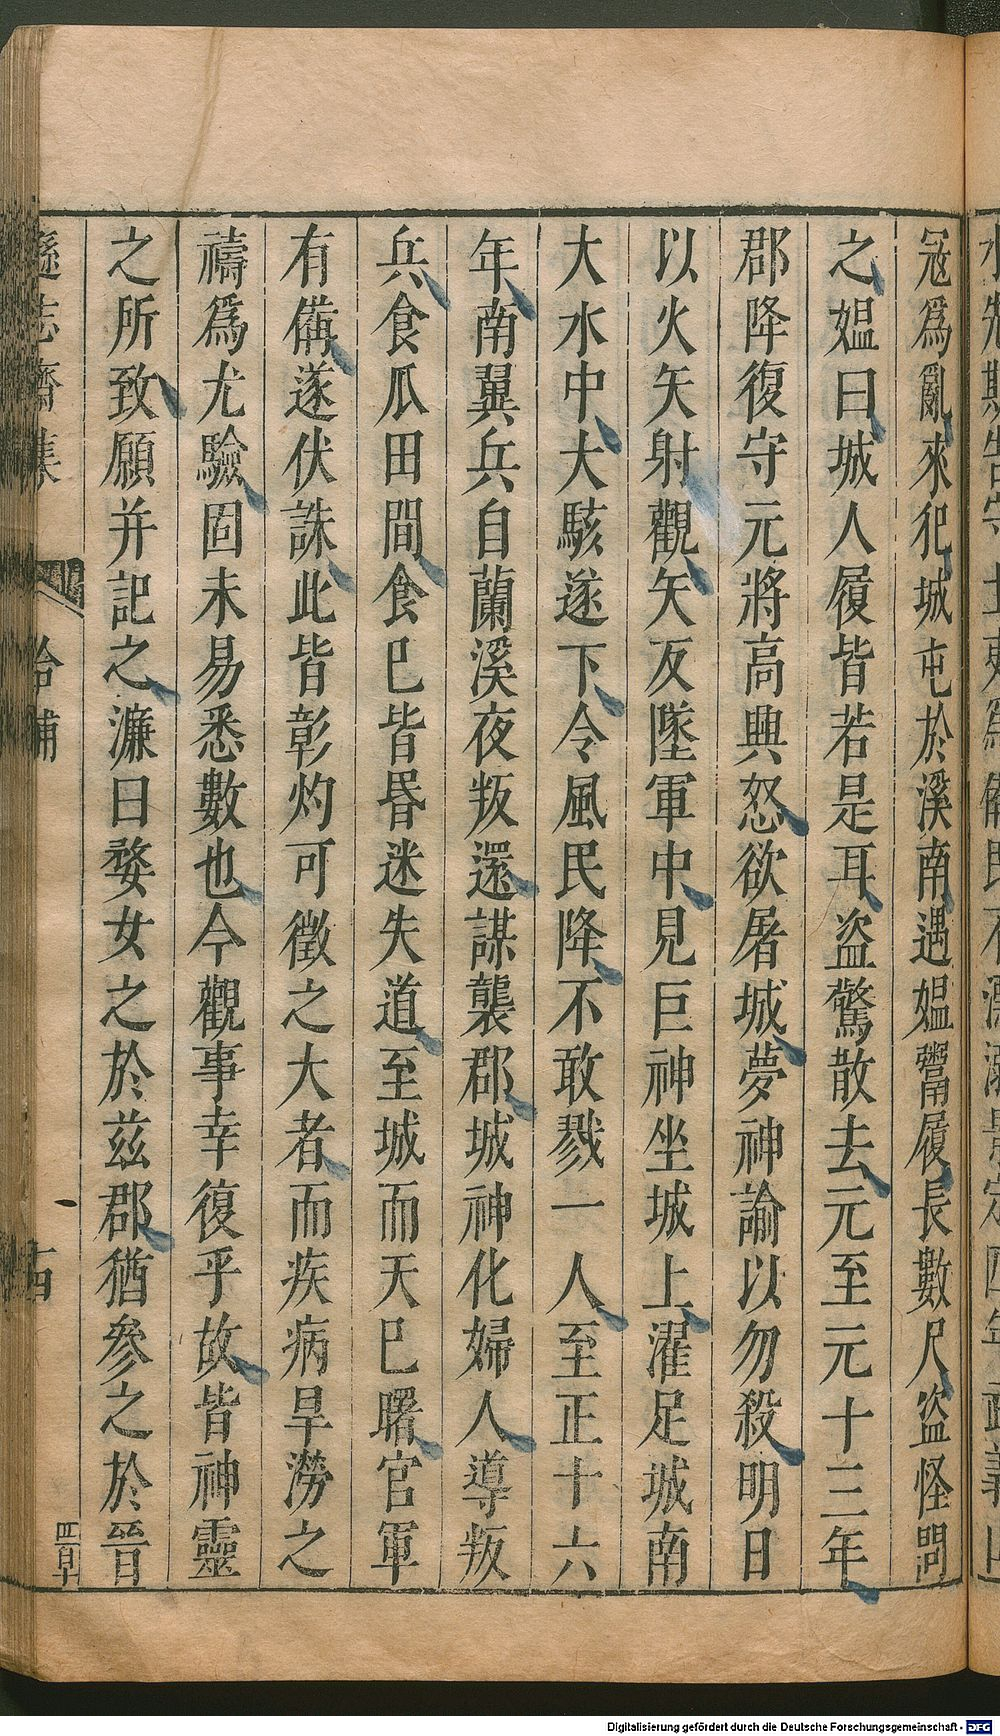 冦爲亂來犯城屯於溪南遇媼鬻履長數尺盜怪問
之媼曰城人履皆若是耳盜驚散去元至元十三年
郡降復守元將高興怒欲屠城夢神諭以勿殺明日
以火矢射觀矢反墜軍中見巨神坐城上濯足城南
大水中大駭遂下令風民降不敢戮一人至正十六
年南翼兵自蘭溪夜叛還謀襲郡城神化婦人導叛
兵食瓜田間食巳皆昬迷失道至城而天巳曙官軍
有備遂伏誅此皆彰灼可徵之大者而疾病旱澇之
禱爲尤驗固未易悉數也今觀事幸復乎故皆神靈
之所致願并記之濂曰婺女之於兹郡猶參之於晉
遜志齋集
拾補
十四
四百早
Digitalisierung gefördert durch die Deutsche Forschungsgemeinschaft - DFG